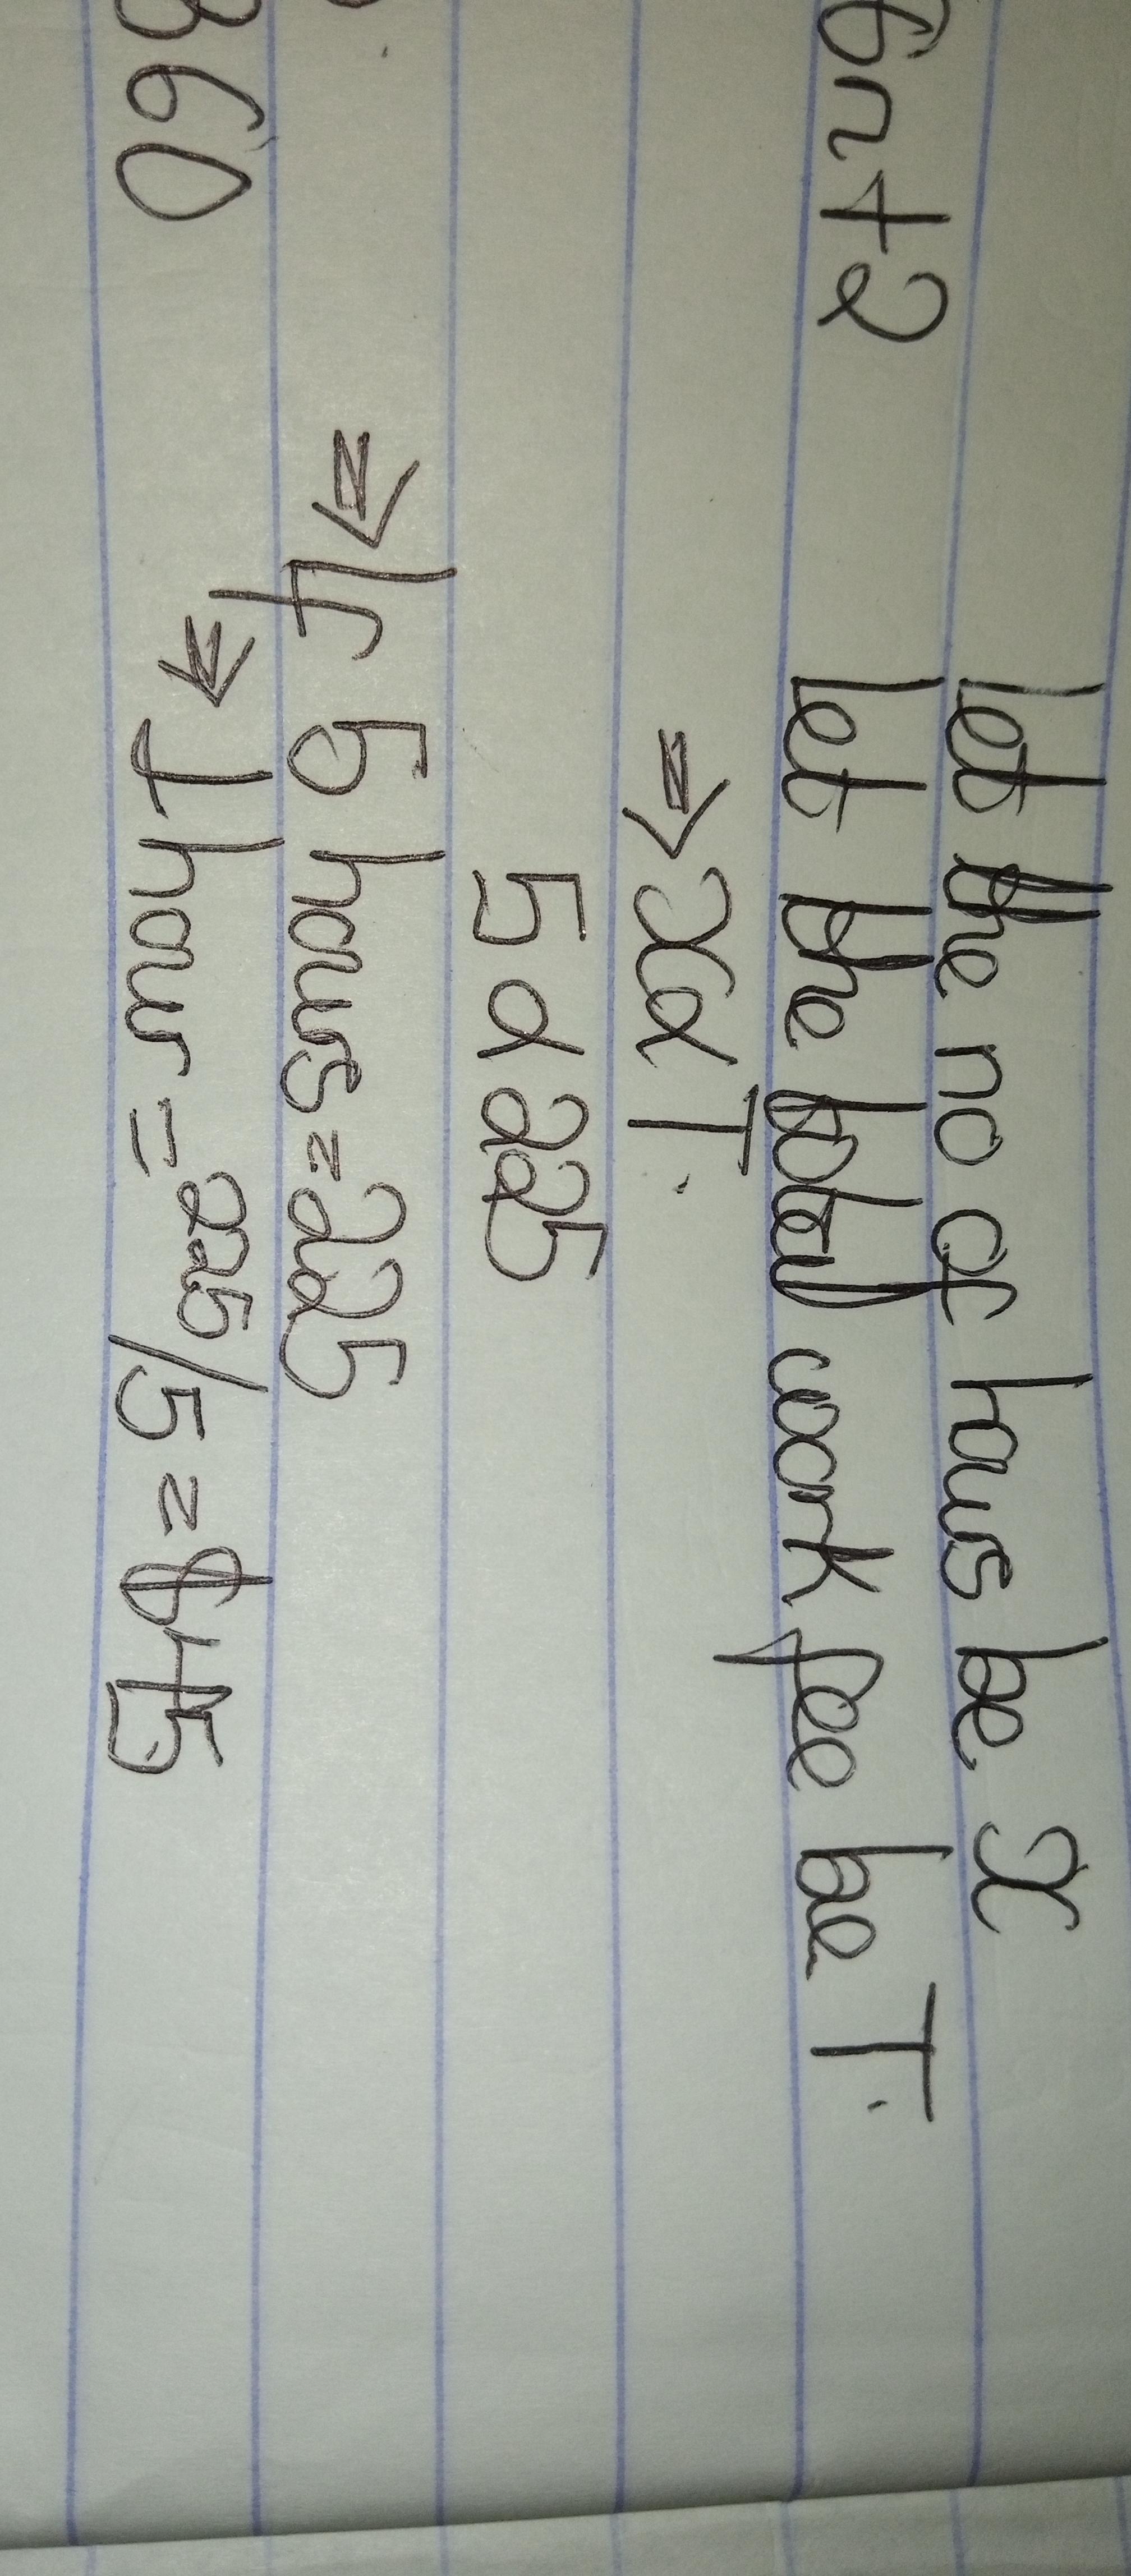 let the no of hours be x
6n+2 let the total work fee be T.
⇒ x α T.
5 α 225
⇒ If 5 hours = 225
360 ⇒ 1 hour = 225/5 = $45